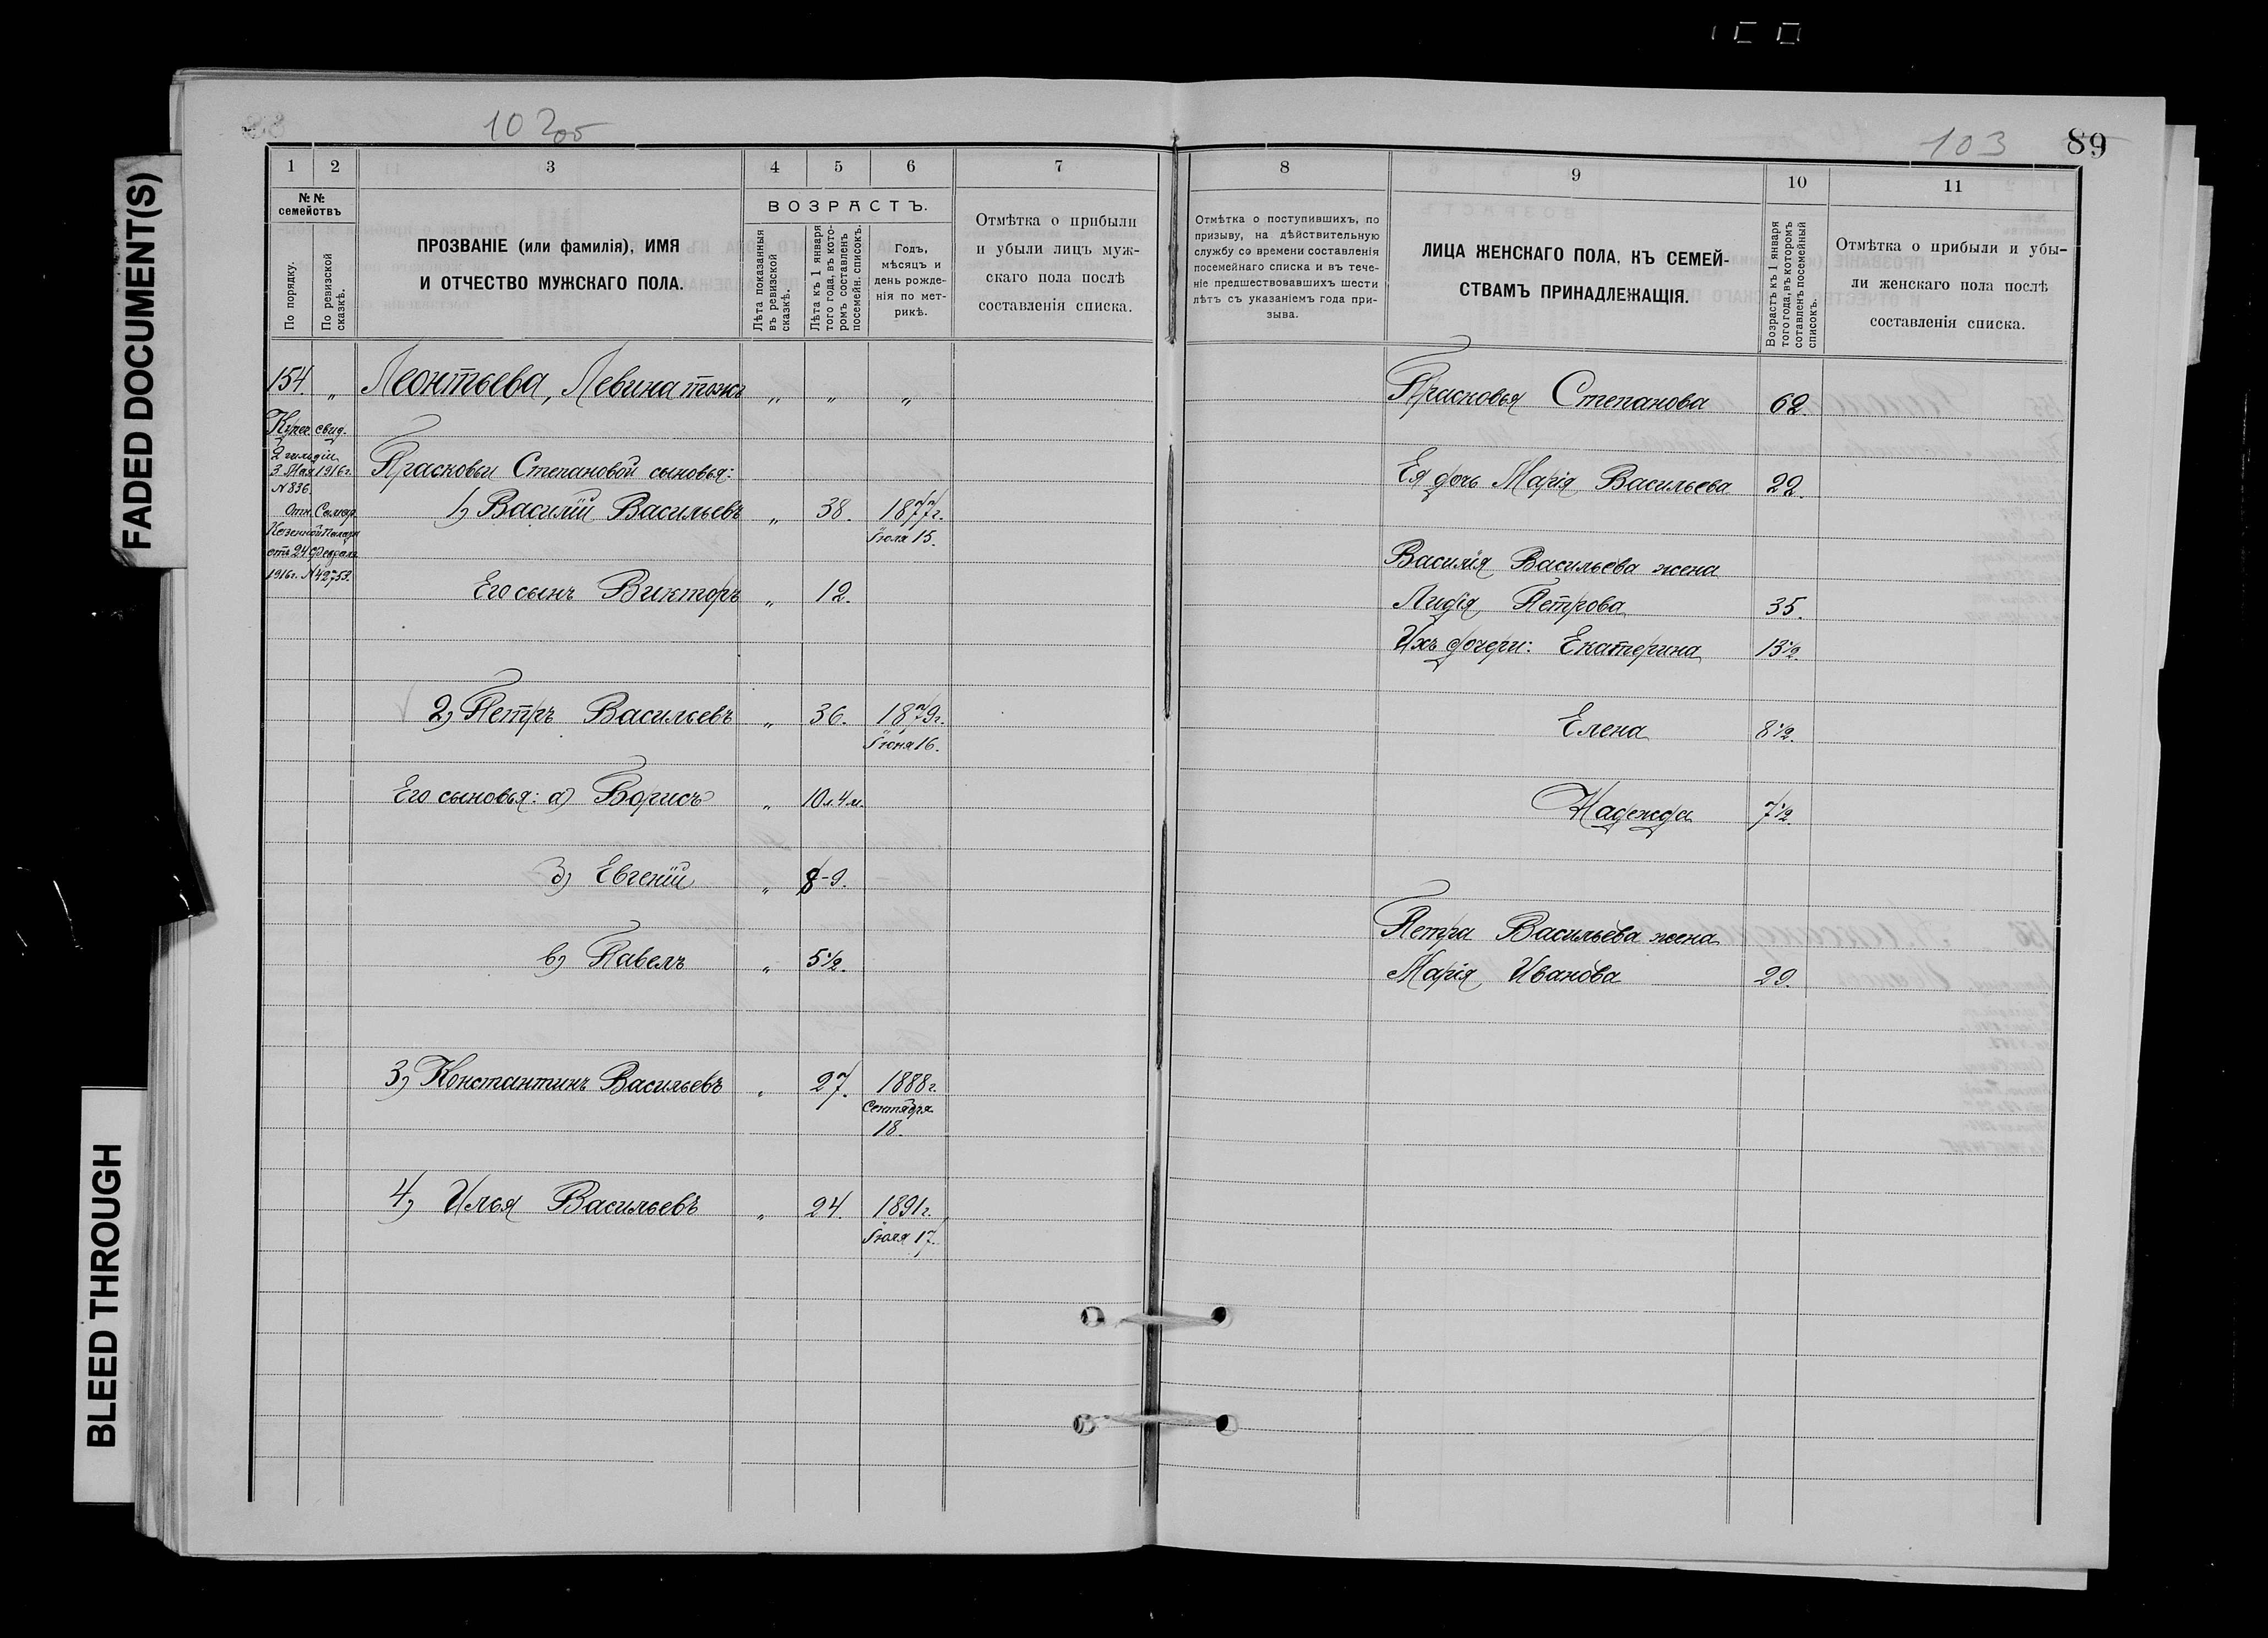 FADED DOCUMENT(S)
BLEED THROUGH
102об
1 2 3 4 5 6 7
№ №
семействъ
По порядку.
По ревизской
сказкѣ.
ПРОЗВАНІЕ (или фамилія), ИМЯ
И ОТЧЕСТВО МУЖСКАГО ПОЛА.
ВОЗРАСТЪ.
Лѣта показанныя
въ ревизской
сказкѣ.
Лѣта къ 1 января
того года, въ кото-
ромъ составленъ
посемейн. списокъ.
Годъ,
мѣсяцъ и
день рожде-
нія по мет-
рикѣ.
Отмѣтка о прибыли
и убыли лицъ муж-
скаго пола послѣ
составленія списка.
154. „ Леонтьева, Левина тожъ „ „ „
Купеч. свид.
2 гильдіи
3 Мая 1916г.
№ 836.
Отн. Самар.
Казенной Палаты
отъ 24 Февраля
1916г. № 42753.
Прасковьи Степановой сыновья:
1) Василій Васильевъ „ 38. 1877г.
Іюля 15.
Его сынъ Викторъ „ 12.
2) Петръ Васильевъ „ 36. 1879г.
Іюня 16.
Его сыновья: а) Борисъ „ 10 л. 4 м.
б) Евгеній „ 8-9.
в) Павелъ „ 5 1/2.
3) Константинъ Васильевъ „ 27. 1888г.
Сентября
18.
4) Илья Васильевъ „ 24. 1891г.
Іюля 17.
103 89
8 9 10 11
Отмѣтка о поступившихъ, по
призыву, на дѣйствительную
службу со времени составленія
посемейнаго списка и въ тече-
ніе предшествовавшихъ шести
лѣтъ съ указаніемъ года при-
зыва.
ЛИЦА ЖЕНСКАГО ПОЛА, КЪ СЕМЕЙ-
СТВАМЪ ПРИНАДЛЕЖАЩІЯ.
Возрастъ къ 1 января
того года, въ которомъ
составленъ посемейный
списокъ.
Отмѣтка о прибыли и убы-
ли женскаго пола послѣ
составленія списка.
Прасковья Степанова 62
Ея дочь Марія Васильева 22.
Василія Васильева жена
Лидія Петрова 35.
Ихъ дочери: Екатерина 13 1/2.
Елена 8 1/2.
Надежда 7 1/2.
Петра Васильева жена
Марія Иванова 29.